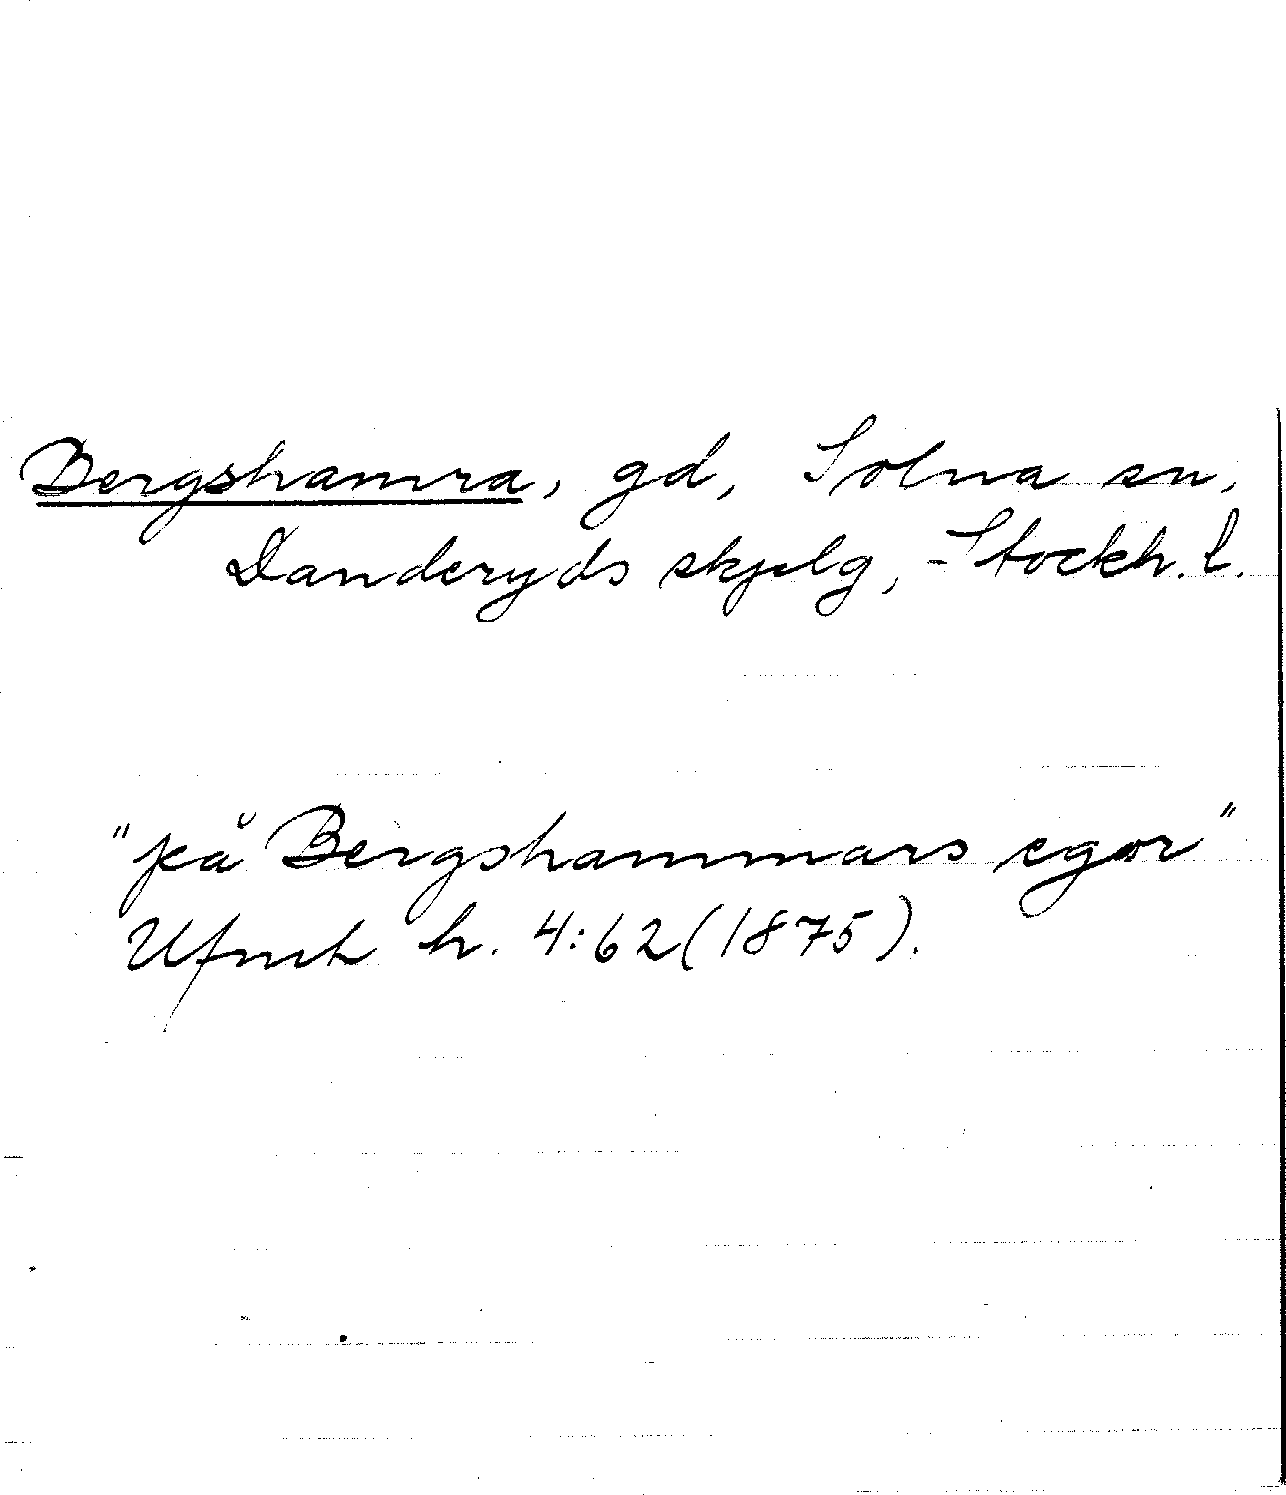 Bergshamra, gd, Solna sn,
Danderyds skjplg, Stockh. l.
"på Bergshammars egor"
Ufmt h. 4:62 (1875).